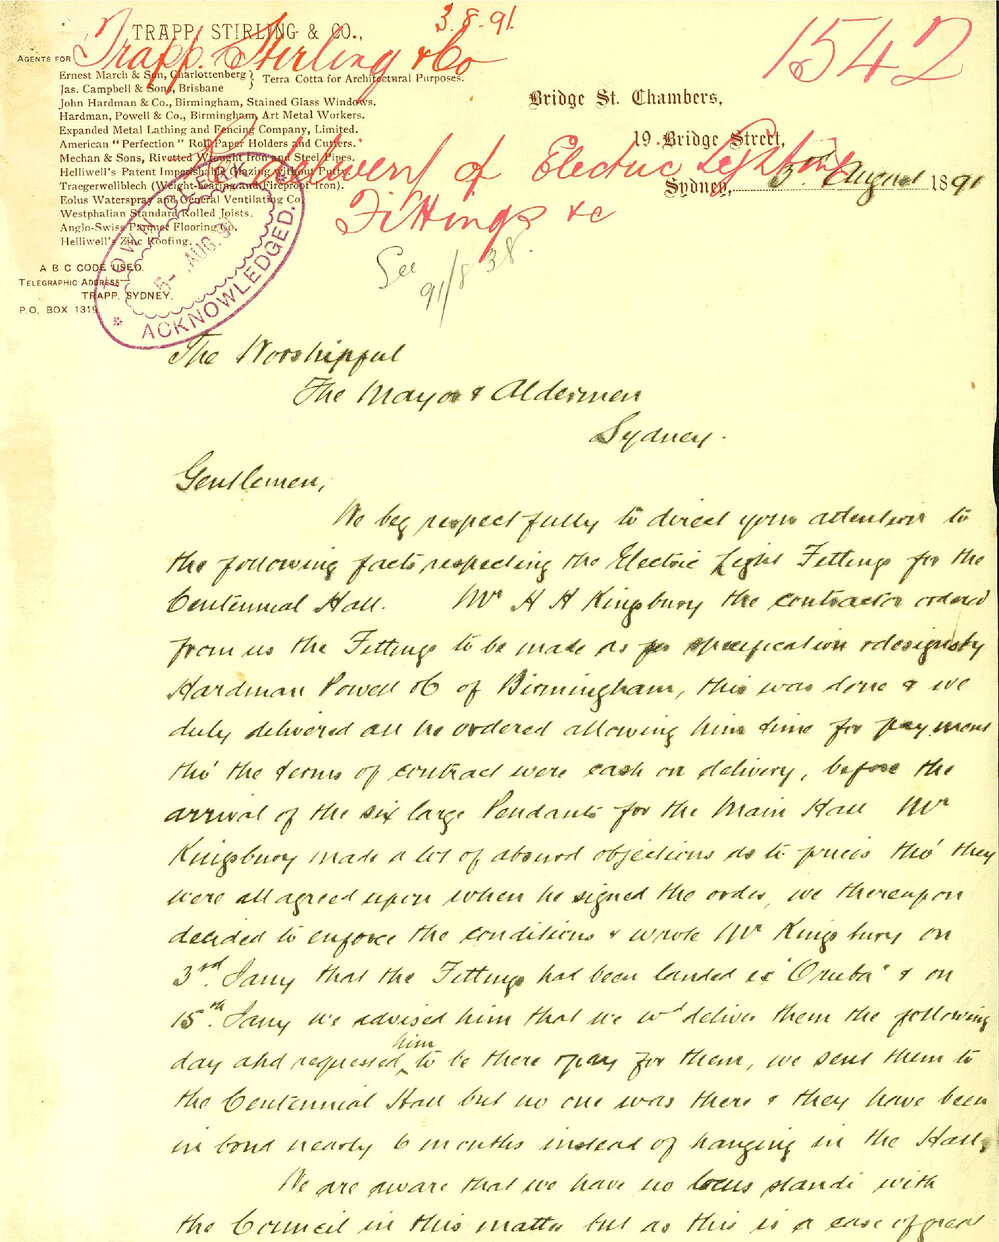 TRAPP, STIRLING & CO.,
3.8.91
Trapp. Stirling & Co
1542
AGENTS FOR
Ernest March & Son, Charlottenberg } Terra Cotta for Architectural Purposes.
Jas. Campbell & Sons, Brisbane
John Hardman & Co., Birmingham, Stained Glass Windows.
Hardman, Powell & Co., Birmingham, Art Metal Workers.
Expanded Metal Lathing and Fencing Company, Limited.
American "Perfection" Roll Paper Holders and Cutters.
Mechan & Sons, Rivetted Wrought Iron and Steel Pipes.
Helliwell's Patent Imperishable Glazing without Putty.
Traegerwellblech (Weight-bearing and Fireproof Iron).
Eolus Waterspray and General Ventilating Co.
Westphalian Standard Rolled Joists.
Anglo-Swiss Parquet Flooring Co.
Helliwell's Zinc Roofing.
A B C CODE USED.
TELEGRAPHIC ADDRESS—
TRAPP, SYDNEY.
P.O. BOX 1319
Bridge St. Chambers,
19 Bridge Street,
Sydney, 3rd August 1891
delivery of Electric Lighting
Fittings &c
See
91/8 38.
TOWN CLERK
5- AUG. 91
* ACKNOWLEDGED. *
The Worshipful
The Mayor & Aldermen
Sydney.
Gentlemen,
We beg respectfully to direct your attention to
the following facts respecting the Electric Light Fittings for the
Centennial Hall. Mr H H Kingsbury the contractor ordered
from us the Fittings to be made as per specification & designs by
Hardman Powell & Co of Birmingham, this was done & we
duly delivered all he ordered allowing him time for payment
tho' the terms of contract were cash on delivery, before the
arrival of the six large Pendants for the Main Hall Mr
Kingsbury made a lot of absurd objections as to prices tho' they
were all agreed upon when he signed the order, we thereupon
decided to enforce the conditions & wrote Mr Kingsbury on
3rd. Jany that the Fittings had been landed ex "Oruba" & on
15th. Jany we advised him that we wd deliver them the following
day and requested him to be there & pay for them, we sent them to
the Centennial Hall but no one was there & they have been
in bond nearly 6 months instead of hanging in the Hall,
We are aware that we have no locus standi with
the Council in this matter but as this is a case of great